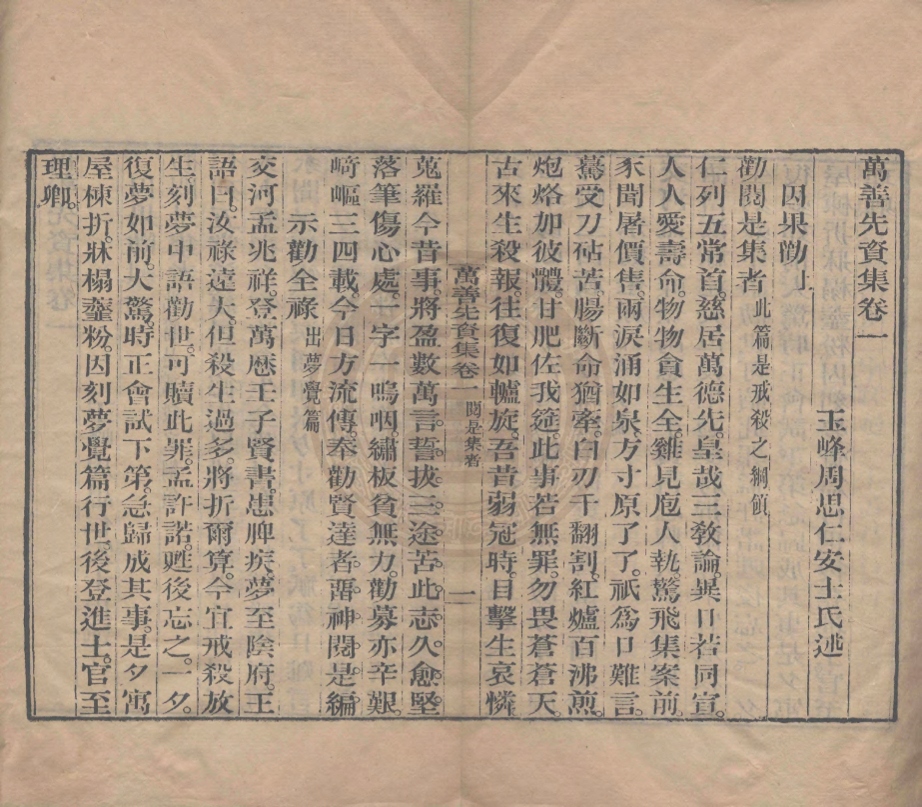 萬善先資集卷一
玉峰周思仁安士氏述
因果勸上
勸閱是集者 此篇是戒殺之綱領
仁列五常首。慈居萬德先。皇哉三敎論。異口若同宣。
人人愛壽命。物物貪生全。雞見庖人執。驚飛集案前。
豕聞屠價售。兩淚涌如泉。方寸原了了。祇爲口難言。
驀受刀砧苦。腸斷命猶牽。白刃千翻割。紅爐百沸煎。
炮烙加彼體。甘肥佐我筵。此事若無罪。勿畏蒼蒼天。
古來生殺報。往復如轤旋。吾昔弱冠時。目擊生哀憐
萬善先資集卷一 閱是集者 一
蒐羅今昔事。將盈數萬言。誓拔三途苦。此志久愈堅。
落筆傷心處。一字一嗚咽。繡板貧無力。勸募亦辛艱。
﨑嶇三四載。今日方流傳。奉勸賢達者。畱神閱是編
示勸全祿 出夢覺篇
交河孟兆祥。登萬曆壬子賢書。患脾疾。夢至陰府。王
語曰。汝祿遠大。但殺生過多。將折爾算。今宜戒殺放
生。刻夢中語勸世。可贖此罪。孟許諾。甦後忘之。一夕。
復夢如前。大驚。時正會試下第。急歸成其事。是夕寓
屋棟折。牀榻虀粉。因刻夢覺篇行世。後登進士。官至
理卿。